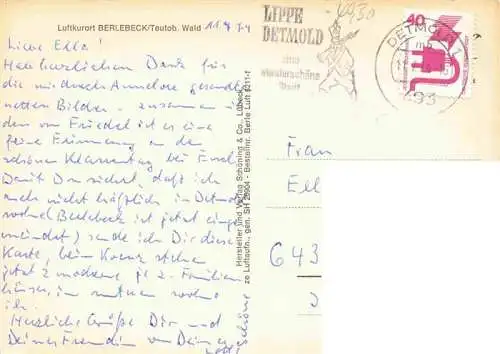 Luftkurort BERLEBECK/Teutob. Wald 11.4.74
Liebe Ella!
Hab herzlichen Dank für
die mir durch Annelore gesandten
netten Bilder. zusammen mit
den von Friedel ist es eine
feine Erinnerung an den
schönen Klassentag bei
Damit Du siehst, daß ich
auch nicht häßlich in Detmold
wohne (Berlebeck ist jetzt einge-
meindet) sende ich Dir diese
Karte, beim Kreuz stehen
jetzt 2 moderne je 2-Familien
häuser, im unteren wohne
ich.
Herzliche Grüße Dir und
Deiner Freundin von Deiner
Hersteller und Verlag Schöning & Co., Lübeck
ze Luftaufn., gen. SH 28904 - Bestellnr. Berle Luft 6211-f
LIPPE
DETMOLD
eine
wunderschöne
Stadt
4930
DETMOLD 1
mb
493
40
Frau
Ell
643